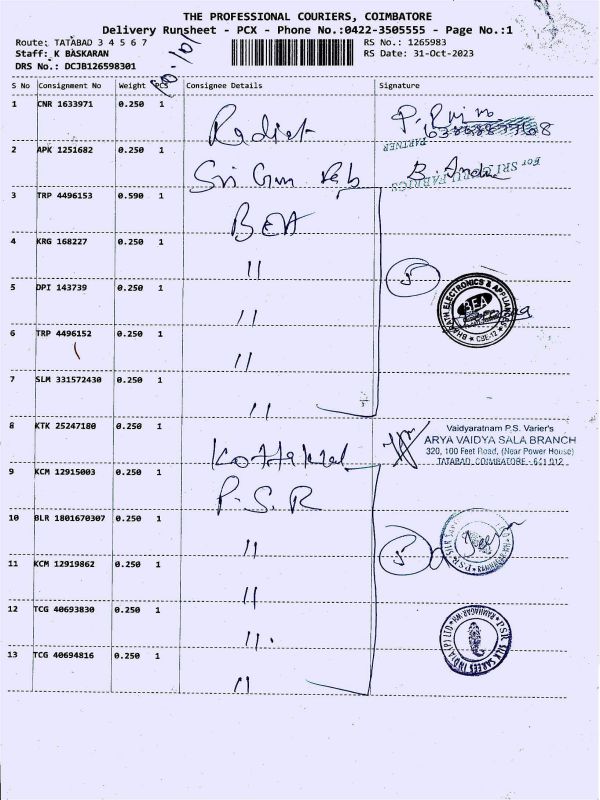 THE PROFESSIONAL COURIERS, COIMBATORE
Delivery Runsheet - PCX - Phone No.:0422-3505555 - Page No.:1
Route: TATABAD 3 4 5 6 7
RS No.: 1265983
Staff: K BASKARAN
RS Date: 31-Oct-2023
DRS No.: DCJB126598301
S No Consignment No Weight PCS Consignee Details Signature
1 CNR 1633971 0.250 1
2 APK 1251682 0.250 1 Sri Gru Fab B.
PARTNER
For SRI GURU FABRICS
3 TRP 4496153 0.590 1 BEA
4 KRG 168227 0.250 1 "
5
5 DPI 143739 0.250 1 "
BHARATH ELECTRONICS & APPLIANCES
BEA
CBE-12
6 TRP 4496152 0.250 1 "
7 SLM 331572430 0.250 1 "
8 KTK 25247180 0.250 1 Kottakkal
Vaidyaratnam P.S. Varier's
ARYA VAIDYA SALA BRANCH
320, 100 Feet Road, (Near Power House)
TATABAD, COIMBATORE - 641 012
9 KCM 12915003 0.250 1 P.S.R
10 BLR 1801670307 0.250 1 "
5
11 KCM 12919862 0.250 1 "
12 TCG 40693830 0.250 1 "
P.S.R SILK SAREES INDIA
13 TCG 40694816 0.250 1 "